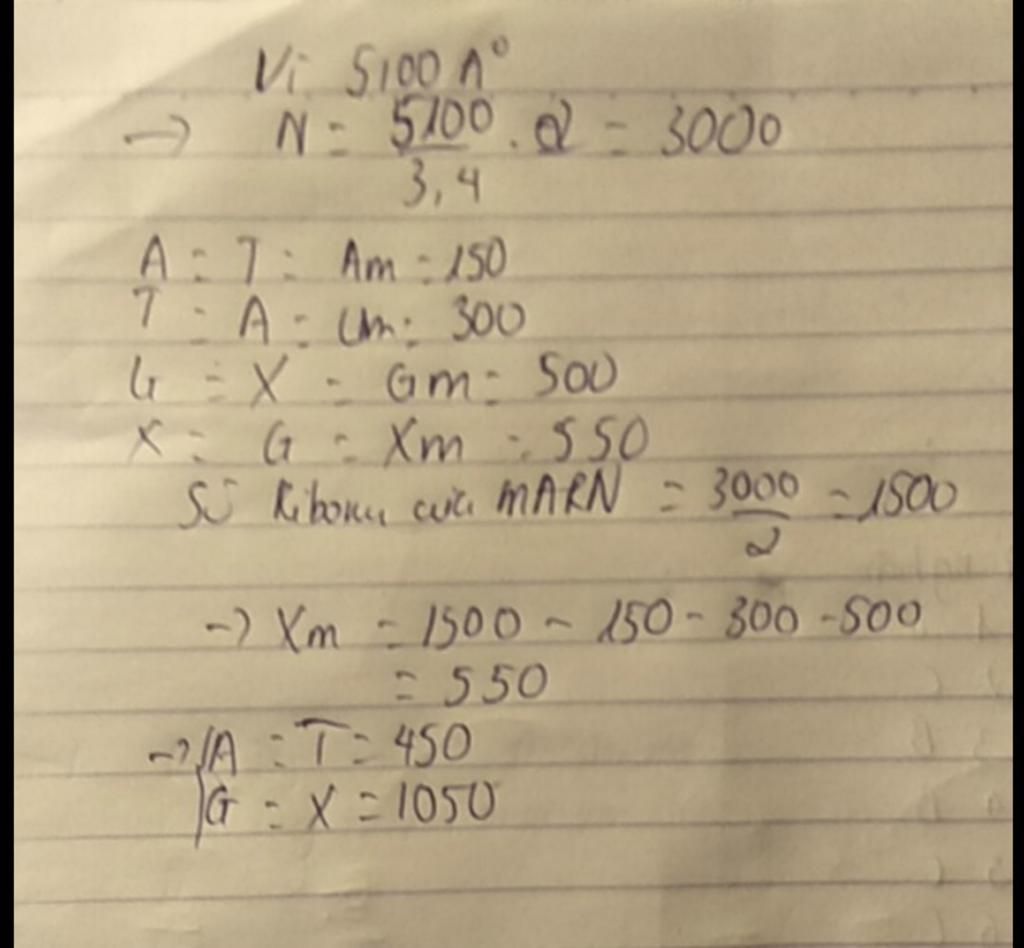 Vì 5100 A°
→ N = 5100/3,4 . 2 = 3000
A = T = Am = 150
T = A = Um = 300
G = X = Gm = 500
X = G = Xm = 550
Số Ribonu của mARN = 3000/2 = 1500
→ Xm = 1500 - 150 - 300 - 500
= 550
→ A = T = 450
G = X = 1050